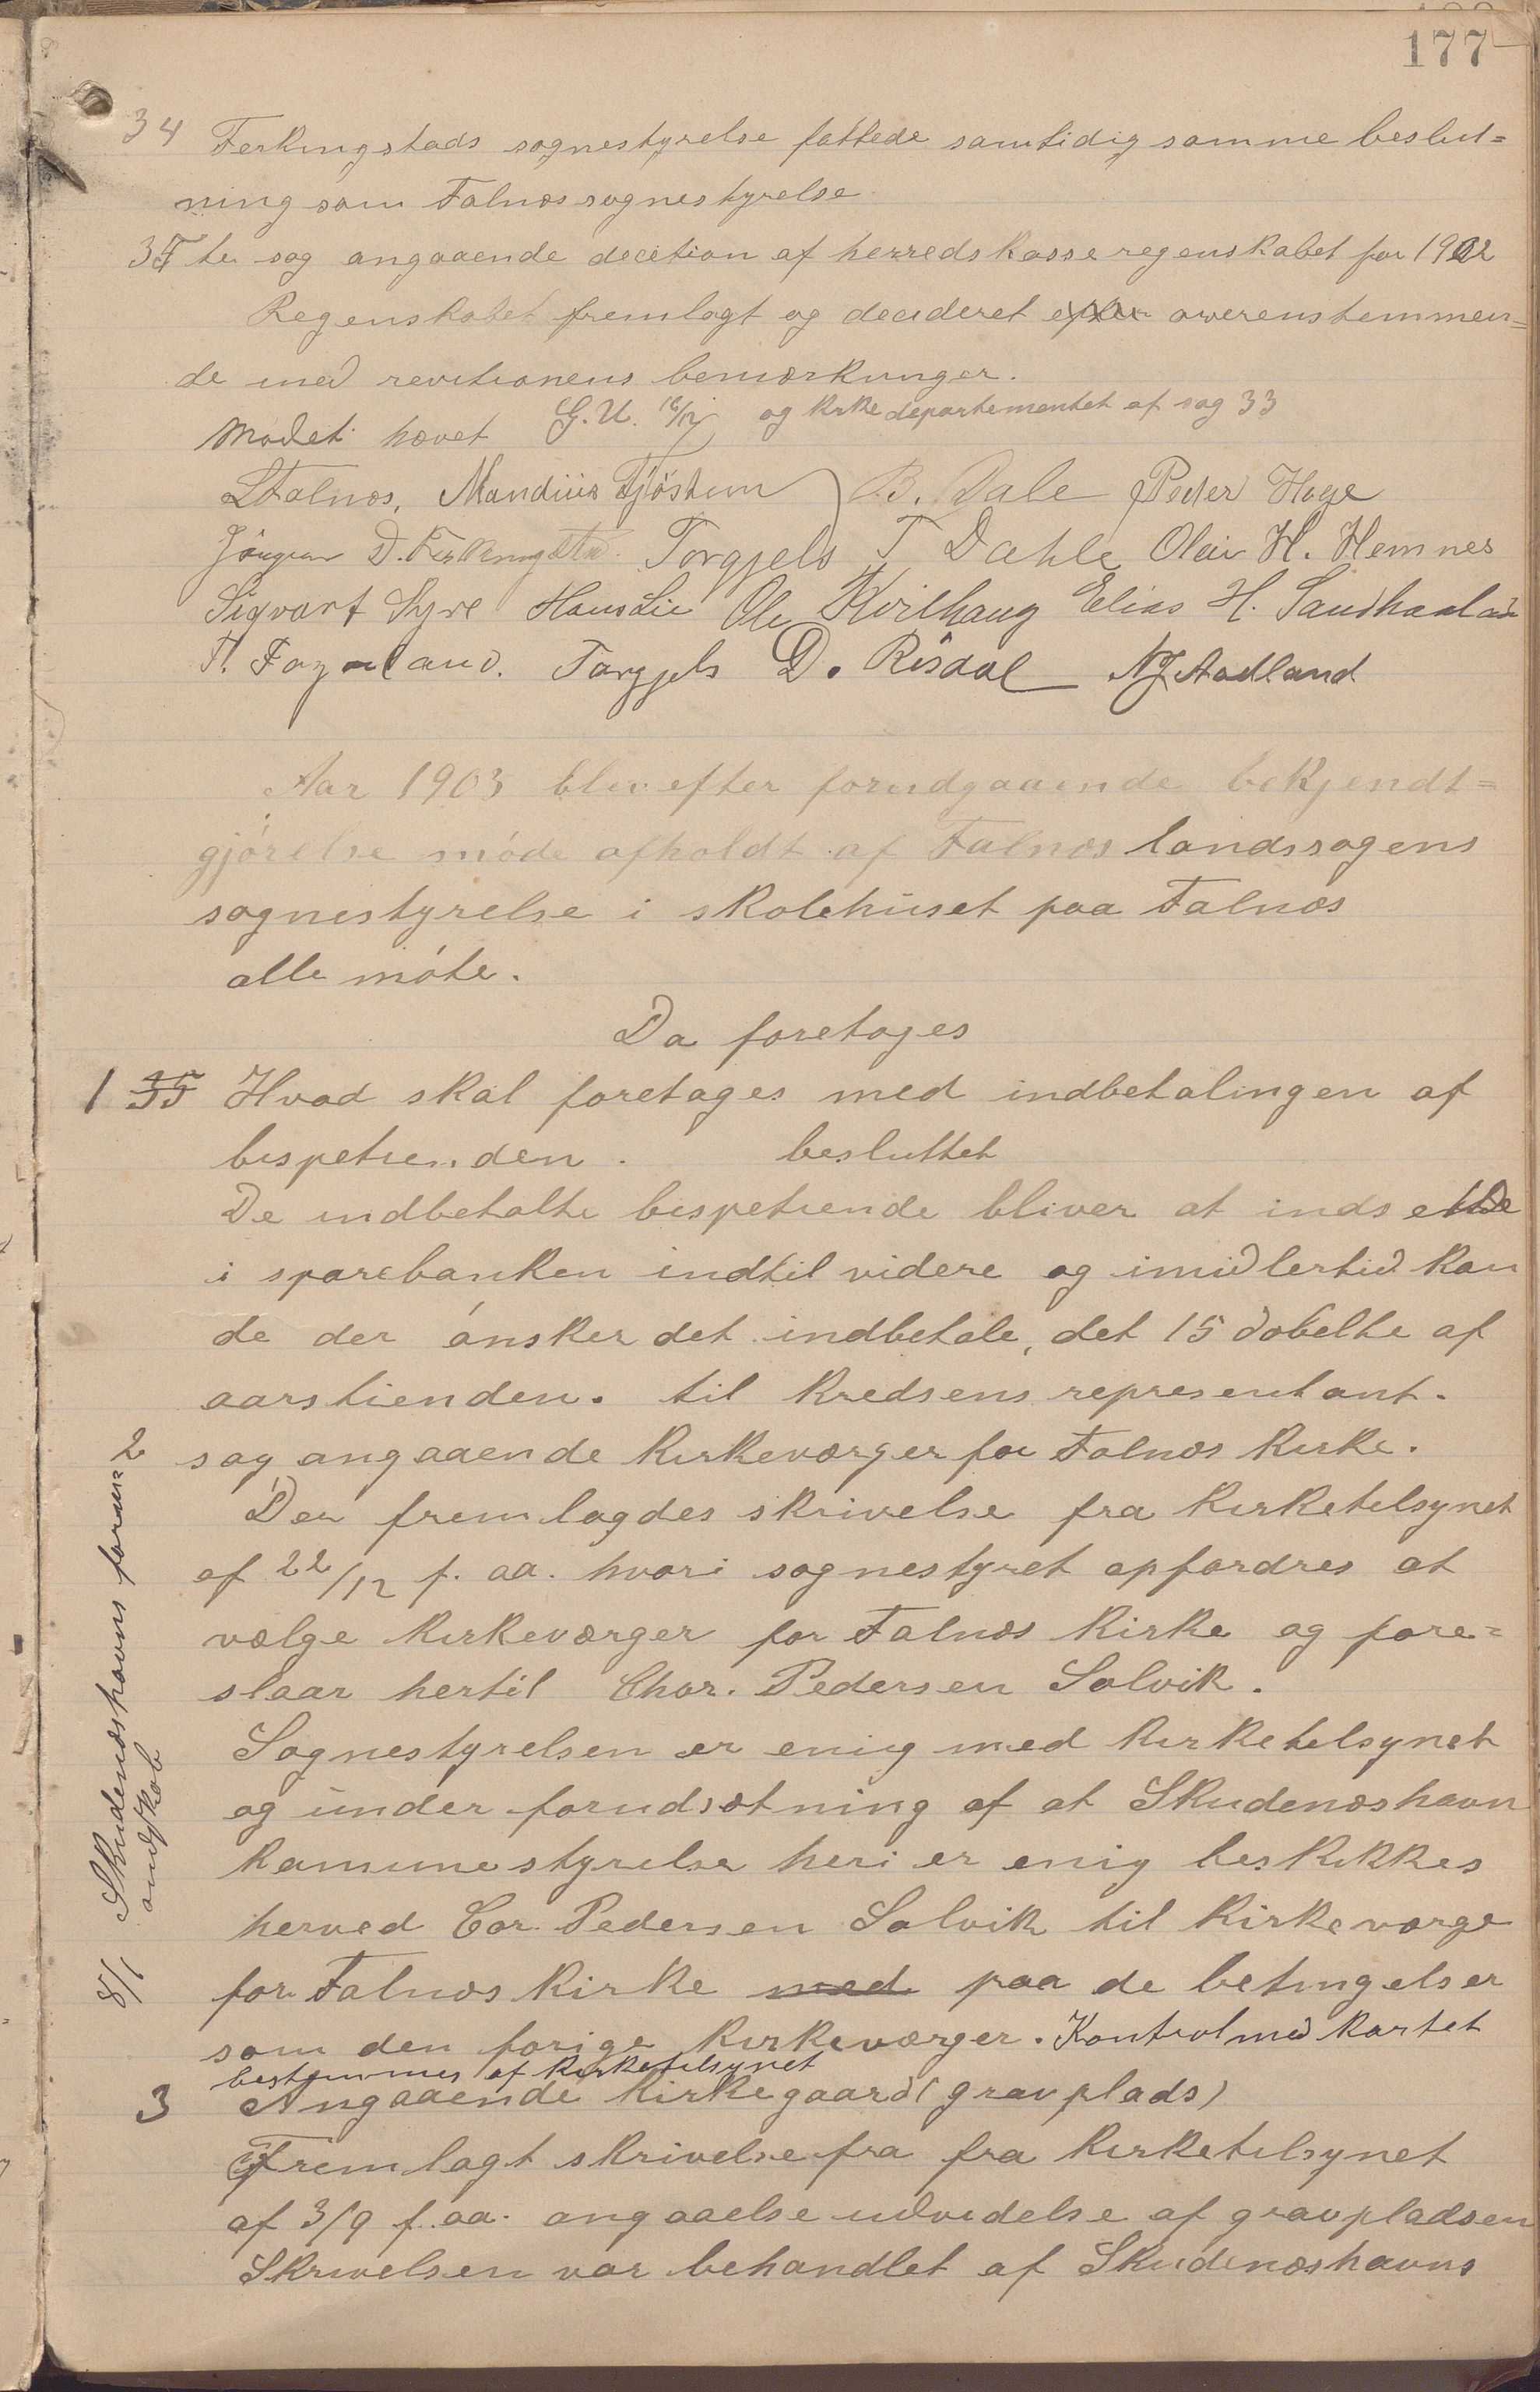 177
34 Ferkingstads sognestyrelse fattede samtidig samme beslut=
ning som Falnæs sognestyrelse
35 te sag angaaende decition af herredskasseregenskabet for 1902
Regenskabet fremlagt og decideret overenstemmen=
de med revitionens bemærkninger.
Mødet hævet G.U. og kirkedepartementet af sag 33
L Falnæs, Mandius Tjøstem B. Dale Peder Hage
Jørgen D. Ferkingstad. Torgjels T Dahle Olai H. Hemnes
Sigvart Syre Hans Lie Ole Kvilhaug Elias H. Sandhaaland
T. Fagerland. Torgjels D. Risdal NJ Stadland
Aar 1903 blev efter forudgaaende bekjendt=
gjørelse møde afholdt af Falnæs landssogens
sognestyrelse i skolehuset paa Falnæs
alle møte.
Da foretages
1 35 Hvad skal foretages med indbetalingen af
bispetienden. besluttet
De indbetalte bispetiende bliver at indsette
i sparebanken indtil videre og imidlertid kan
de der ønsker det indbetale, det 15 dobelte af
aarstienden. til kredsens representant.
2 sag angaaende kirkeværger for Falnæs kirke.
Der fremlagdes skrivelse fra kirketilsynet
af 22/12 f. aa. hvori sognestyret opfordres at
vælge kirkeværger for Falnæs kirke og fore=
slaar hertil Chor. Pedersen Solvik.
Sognestyrelsen er enig med kirketilsynet
og under forudsætning af at Skudenæshavn
kamunestyrelse heri er enig beskikkes
herved Cor. Pedersen Solvik til kirkeværge
for Falnæs kirke med paa de betingelser
som den forige kirkeværger. Kontrol med kartet
bestemmes af kirketilsynet
8/1 Skudenæshavns formandskab
3 Angaaende kirkegaard (gravplads)
Fremlagt skrivelse fra fra kirketilsynet
af 3/9 f. aa. angaaelse udvidelse af gravpladsen
Skrivelsen var behandlet af Skudenæshavns